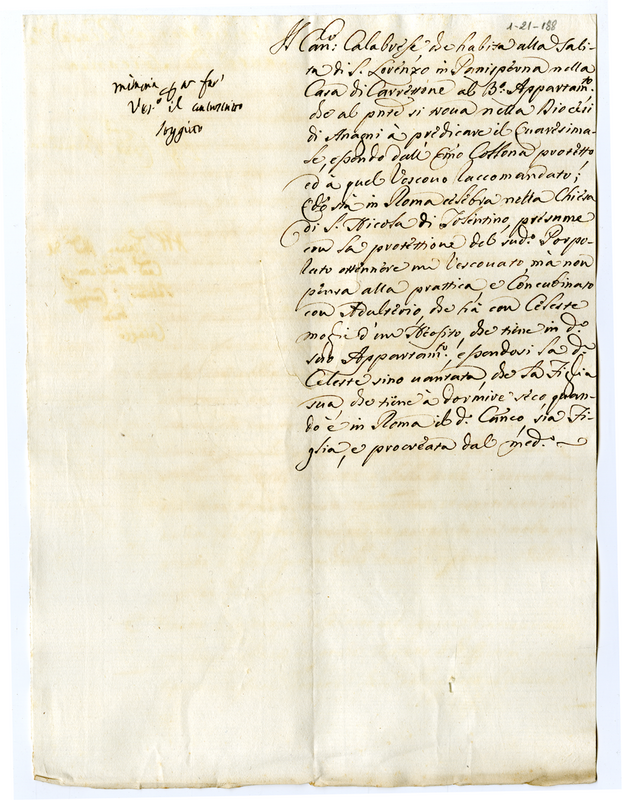 1-21-188
Il Can:co Calabrese che habita alla Sali-
ta di S. Lorenzo in Panisperna nella
Casa di Carrerone al 3:o Appartam:to
che al pnte si trova nella Diocesi
di Anagni à predicare il Quaresima-
le, essendo dall' Emo Collona protetto
ed à quel Vescovo raccomandato;
stà in Roma celebra nella Chiesa
di S. Nicola di Tolentino, presume
con la protettione del sud:o Porpo-
rato ottenere un Vescovato, mà non
pensa alla prattica e Concubinato
con Adulterio, che hà con Celeste
moglie d'un che tiene in d:o
suo Appartam:to, essendosi la d:a
Celeste sino vantata, che la Figlia
sua, che tiene à dormire seco quan-
do è in Roma il d:o Can:co, sia Fi-
glia, e procreata dal med:o
memoria p. far
Ves:o il
soggetto